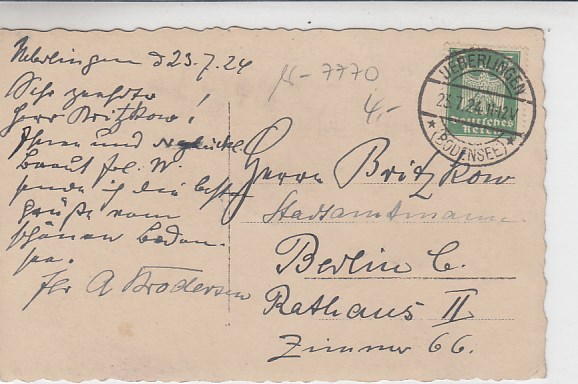 Ueberlingen d 23.7.24
Sehr geehrter
Herr Britzkow!
Ihnen und
Braut frl. W.
sende ich die besten
Grüße vom
schönen Boden-
see.
Ihr A Brodersen
7770
4.-
UEBERLINGEN
23.7.24.11-12V
★ (BODENSEE) ★
Deutsches
Reich
Herrn Britzkow
Stadtamtmann
Berlin C.
Rathaus II
Zimmer 66.